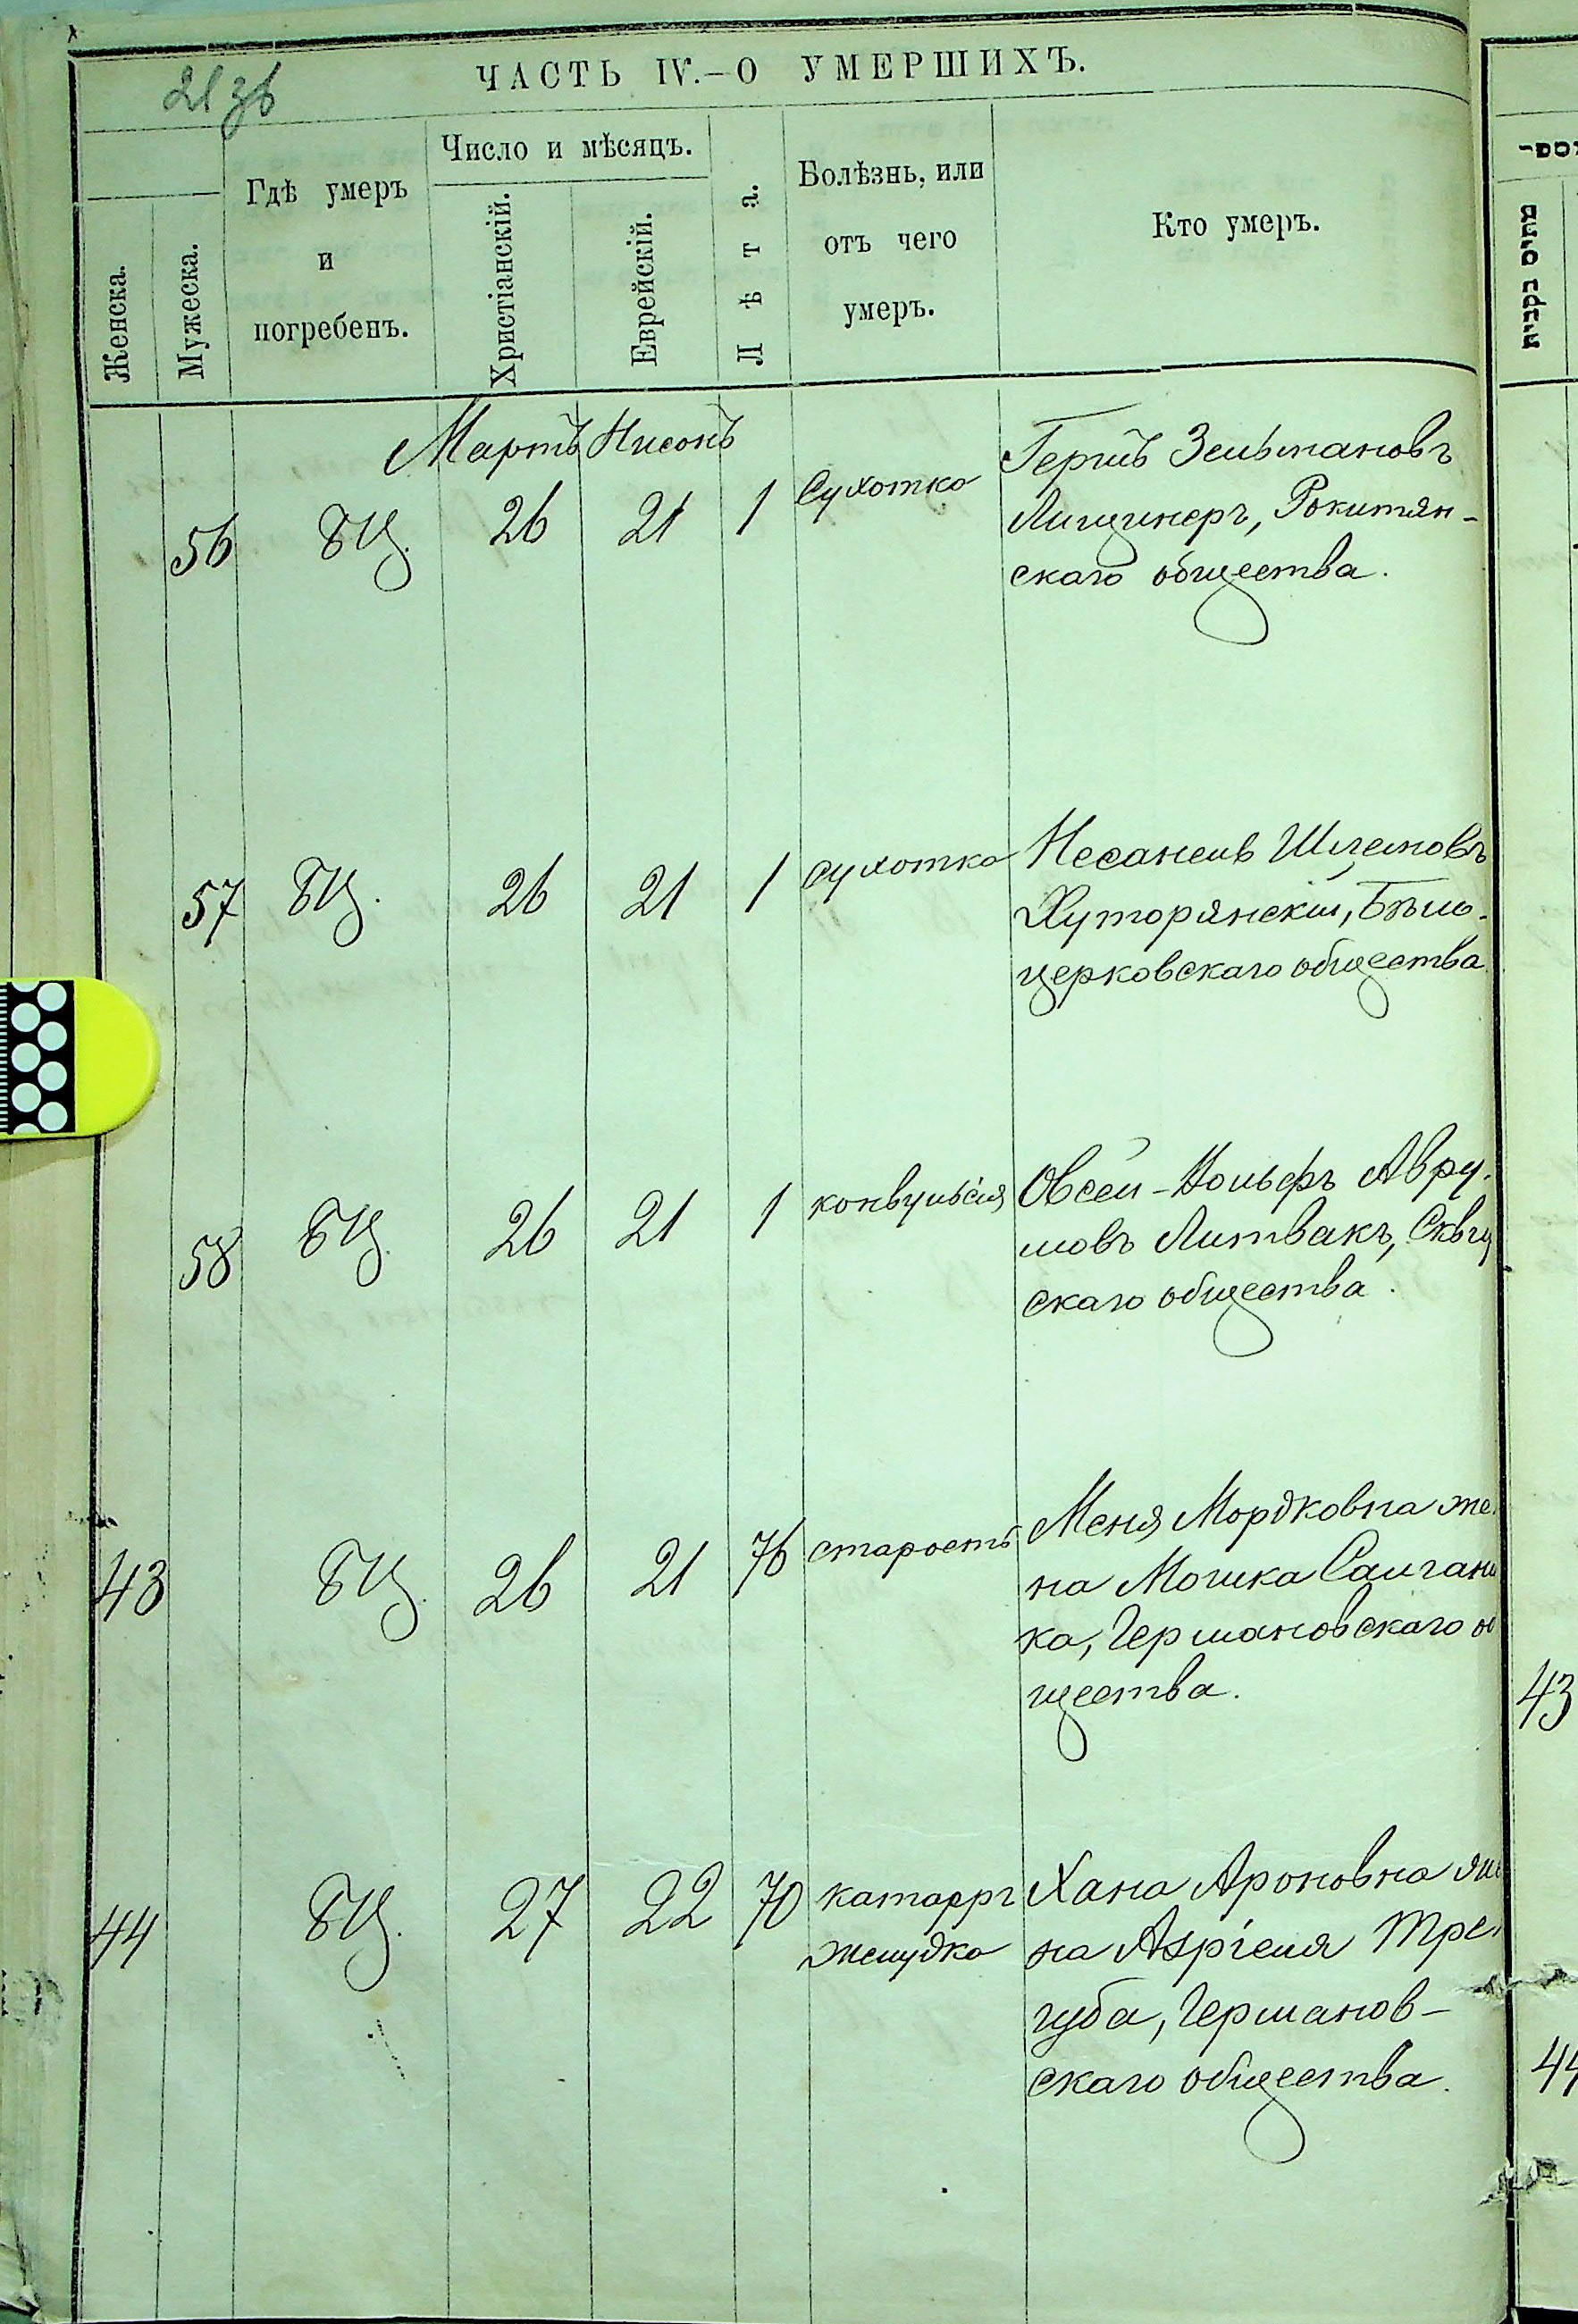 21 зв
ЧАСТЬ IV.–О УМЕРШИХЪ.
Женска.
Мужеска.
Гдѣ умеръ
и
погребенъ.
Число и мѣсяцъ.
Христіанскій.
Еврейскій.
Лѣта.
Болѣзнь, или
отъ чего
умеръ.
Кто умеръ.
Мартъ Нисонъ
56 БЦ. 26 21 1 Сухотка Гершъ Зельмановъ
Лищинеръ, Рокитян-
скаго общества.
57 БЦ. 26 21 1 сухотка Несанель Шлемовъ
Хуторянскій, Бѣло-
церковскаго общества
58 БЦ. 26 21 1 конвульсія Овсей-Вольфъ Авру-
мовъ Литвакъ, Сквиц
скаго общества.
43 БЦ. 26 21 76 старость Меня Мордковна же-
на Мошка
ка, Германовскаго об
щества.
44 БЦ. 27 22 70 катарръ Хана Ароновна же
желудка на Азріеля Тре-
губа, Германов-
скаго общества.
43
44